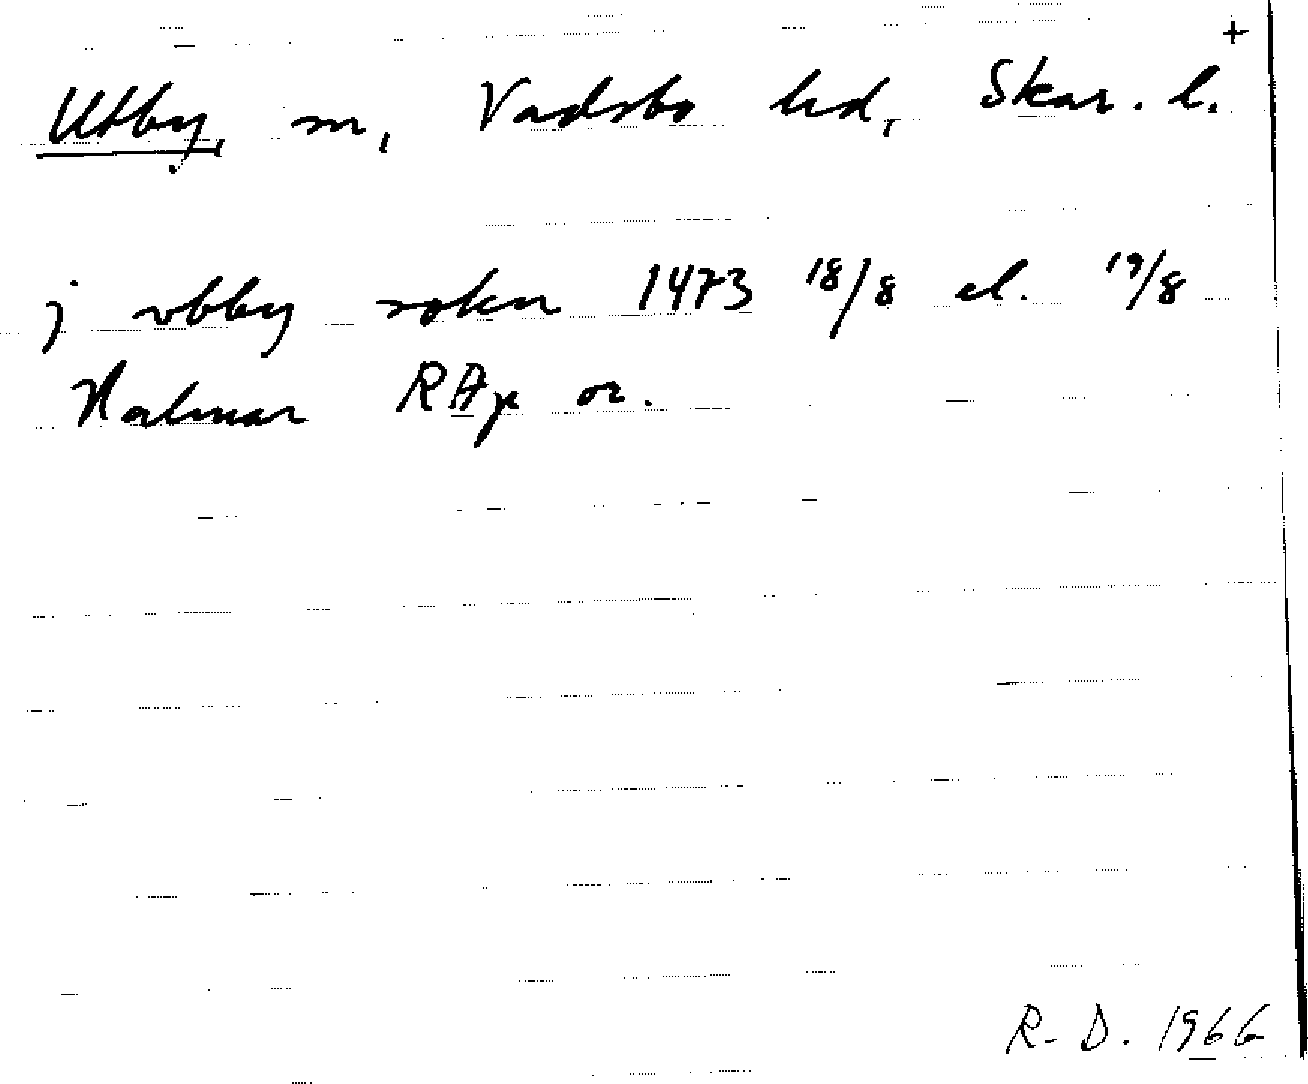 +
Utby, sn, Vadsbo hd, Skar. l.
j vtby sokn 1473 18/8 el. 19/8
Kalmar RAp or.
R. D. 1966